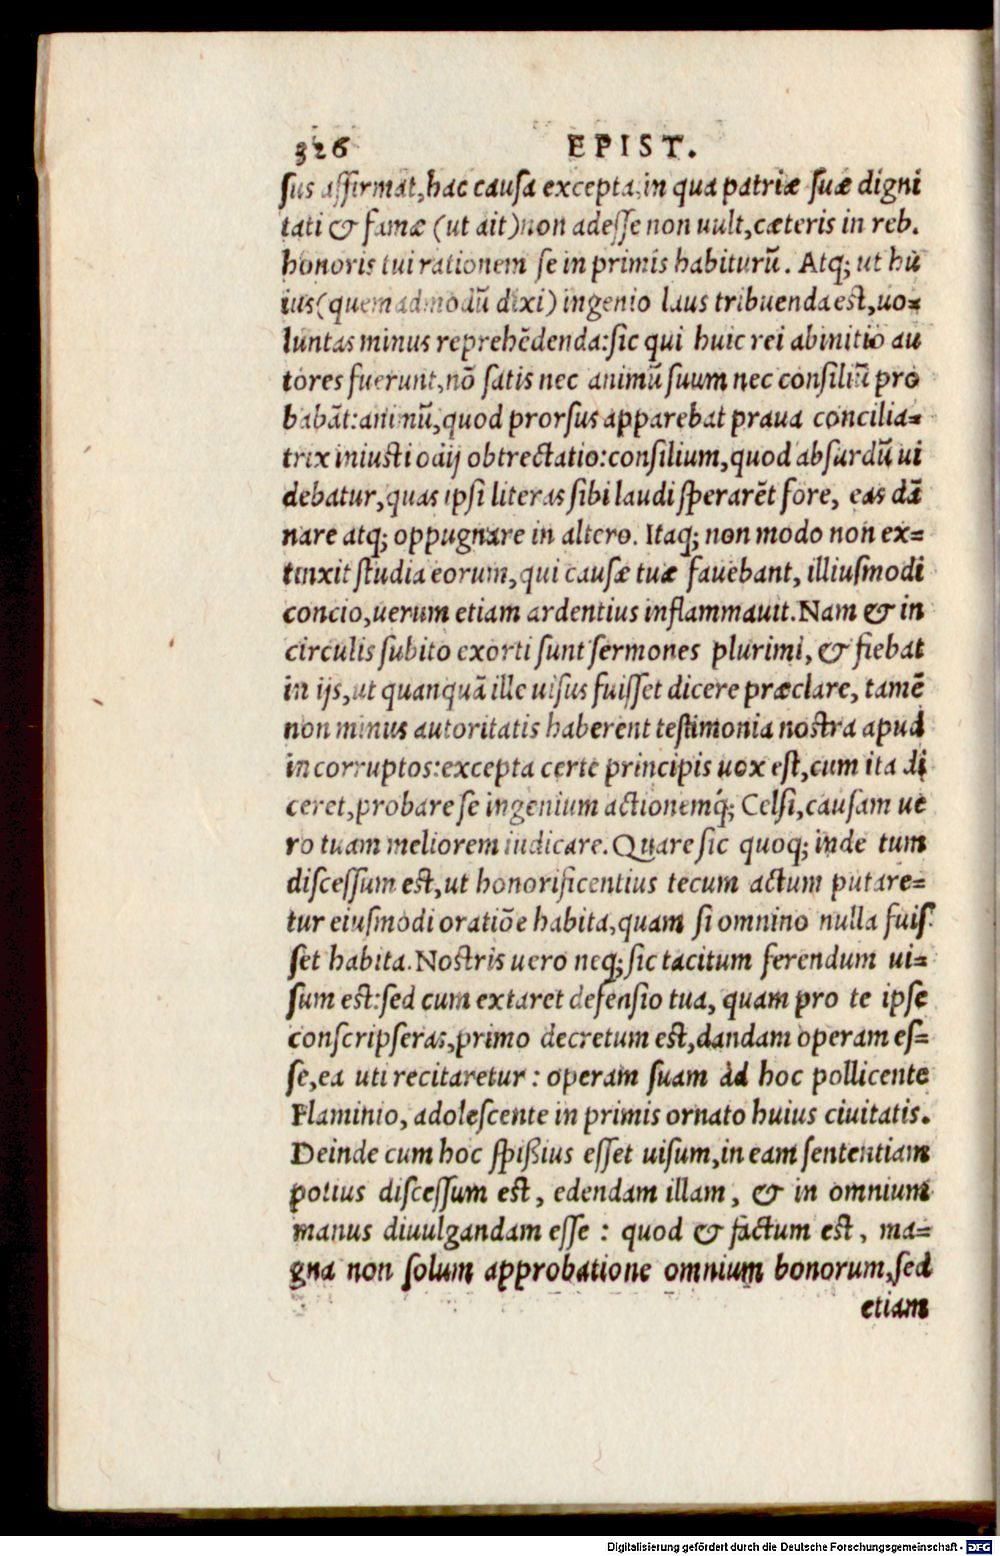 326 EPIST.
sus affirmat, hac causa excepta, in qua patriæ suæ digni
tati & famæ (ut ait) non adesse non uult, cæteris in reb.
honoris tui rationem se in primis habiturū. Atq; ut hu
ius (quemadmodū dixi) ingenio laus tribuenda est, uo=
luntas minus reprehēdenda: sic qui huic rei abinitio au
tores fuerunt, nō satis nec animū suum nec consiliū pro
babāt: animū, quod prorsus apparebat praua concilia=
trix iniusti odij obtrectatio: consilium, quod absurdū ui
debatur, quas ipsi literas sibi laudi sperarēt fore, eas dā
nare atq; oppugnare in altero. Itaq; non modo non ex=
tinxit studia eorum, qui causæ tuæ fauebant, illiusmodi
concio, uerum etiam ardentius inflammauit. Nam & in
circulis subito exorti sunt sermones plurimi, & fiebat
in ijs, ut quanquā ille uisus fuisset dicere præclare, tamē
non minus autoritatis haberent testimonia nostra apud
incorruptos: excepta certe principis uox est, cum ita di
ceret, probare se ingenium actionemq́; Celsi, causam ue
ro tuam meliorem iudicare. Quare sic quoq; inde tum
discessum est, ut honorificentius tecum actum putare=
tur eiusmodi oratiōe habita, quam si omnino nulla fuis
set habita. Nostris uero neq; sic tacitum ferendum ui=
sum est: sed cum extaret defensio tua, quam pro te ipse
conscripseras, primo decretum est, dandam operam es=
se, ea uti recitaretur: operam suam ad hoc pollicente
Flaminio, adolescente in primis ornato huius ciuitatis.
Deinde cum hoc spißius esset uisum, in eam sententiam
potius discessum est, edendam illam, & in omnium
manus diuulgandam esse: quod & factum est, ma=
gna non solum approbatione omnium bonorum, sed
etiam
Digitalisierung gefördert durch die Deutsche Forschungsgemeinschaft - DFG